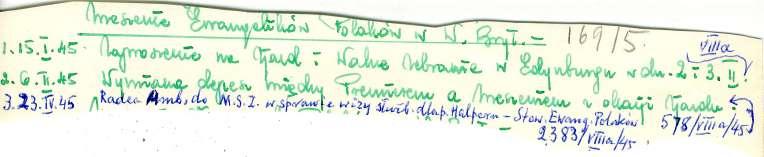 Zrzeszenie Ewangelików Polaków w W. Bryt. — 169/5.
VIIIa
1. 15.I.45. Zaproszenie na Zjazd i Walne Zebranie w Edynburgu w dn. 2 i 3. II.
2. 6.II.45 Wymiana depesz między Premierem a Zrzeszeniem z okazji Zjazdu
3. 23.IV.45 Radca Amb. do M.S.Z. w sprawie wizy służb. dla p. Halperna – Stow. Ewang. Polaków 578/VIIIa/45
2383/VIIIa/45